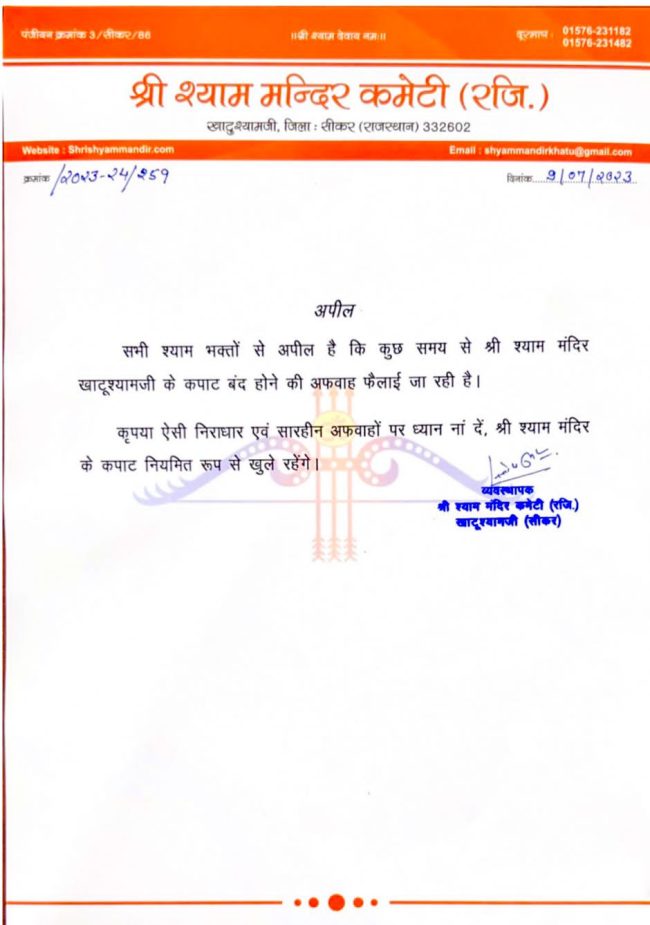 पंजीयन क्रमांक 3/सीकर/86
॥श्री श्याम देवाय नमः॥
दूरभाष : 01576-231182
01576-231482
श्री श्याम मन्दिर कमेटी (रजि.)
खाटूश्यामजी, जिला : सीकर (राजस्थान) 332602
Website : Shrishyammandir.com
Email : shyammandirkhatu@gmail.com
क्रमांक /2023-24/259
दिनांक 9/07/2023
अपील
सभी श्याम भक्तों से अपील है कि कुछ समय से श्री श्याम मंदिर
खाटूश्यामजी के कपाट बंद होने की अफवाह फैलाई जा रही है।
कृपया ऐसी निराधार एवं सारहीन अफवाहों पर ध्यान नां दें, श्री श्याम मंदिर
के कपाट नियमित रूप से खुले रहेंगे।
व्यवस्थापक
श्री श्याम मंदिर कमेटी (रजि.)
खाटूश्यामजी (सीकर)